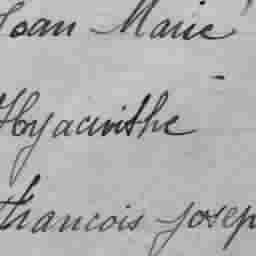 Jean Marie
Hyacinthe
Francois Josep